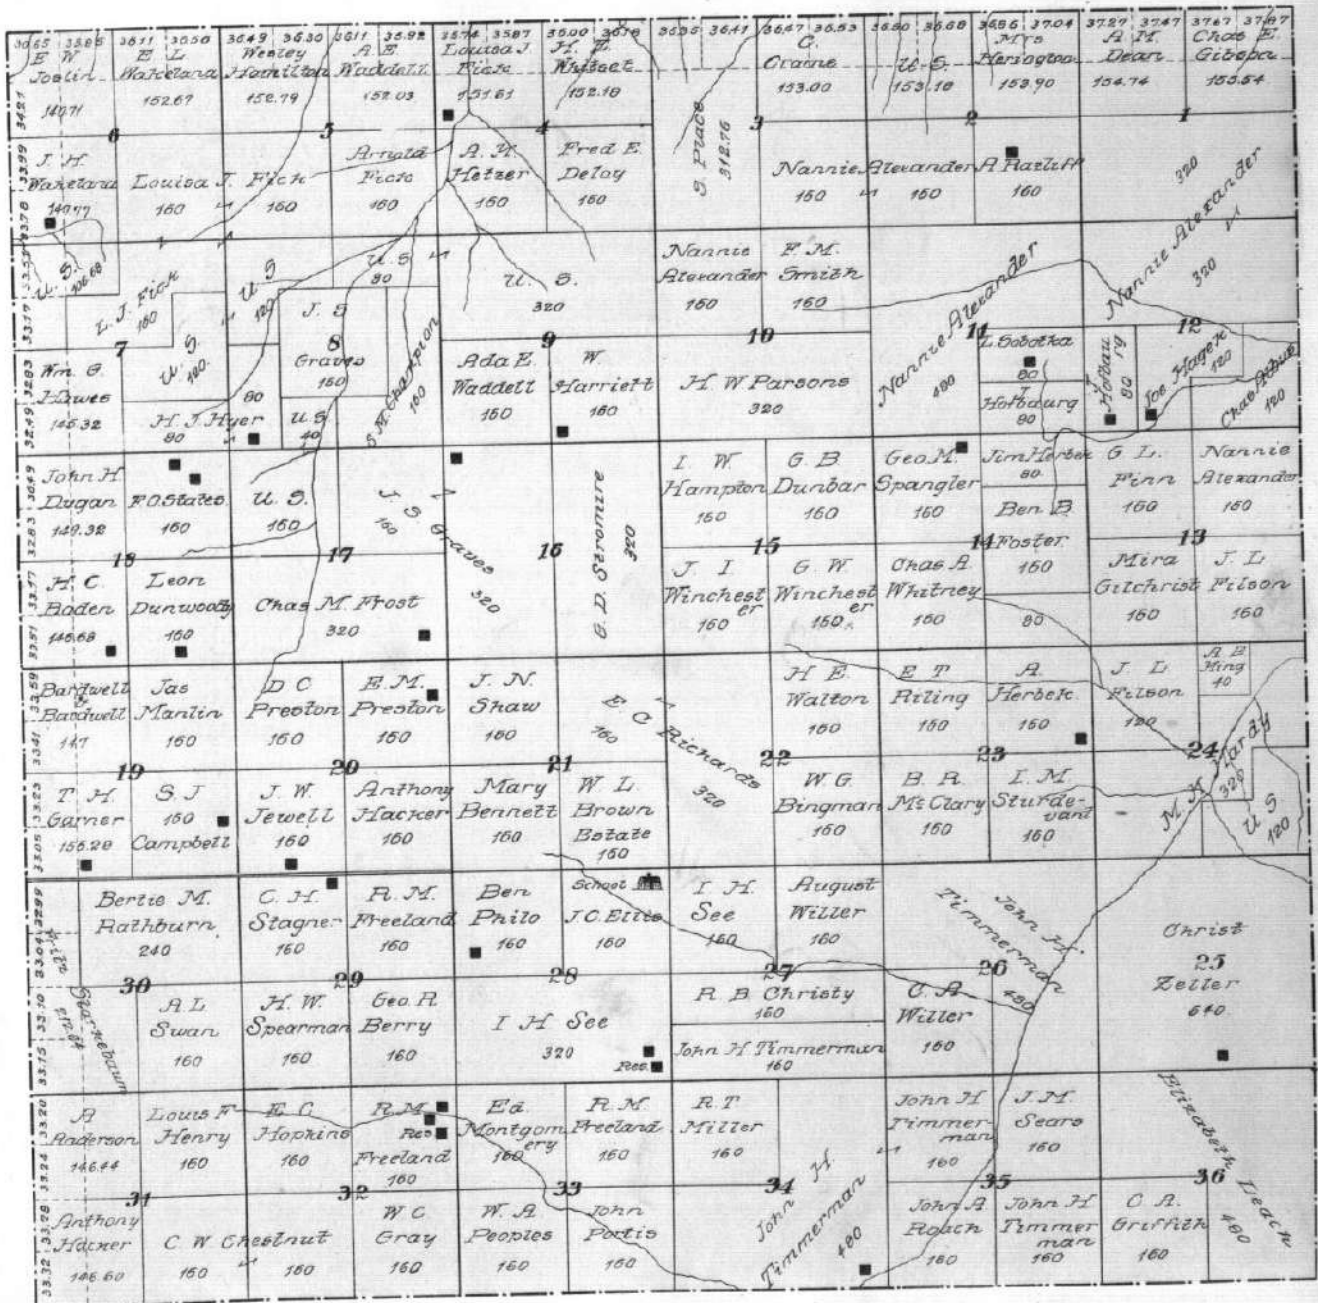 36.65 35.85 36.11 36.50 36.49 36.30 36.11 35.92 35.74 35.87 36.00 36.35 36.41 36.47 36.53 36.60 36.68 36.86 37.04 37.27 37.47 37.67 37.87
E W
Joslin
149.71
E L
Wakeland
152.67
Wesley
Hamilton
152.79
A. E.
Waddell
152.03
Louisa J.
Fick
151.61
H. E.
Whitset
152.18
S. Place
312.76
C.
Craine
153.00
U. S.
153.18
Mrs
Herington
153.90
A. M.
Dean
154.74
Chas E.
Gibson
155.54
6
5
4
3
2
1
J. H.
Wakeland
149.77
Louisa J. Fick
160
160
Arnold
Fick
160
A. H.
Hetzer
160
Fred E.
Deloy
160
Nannie Alexander
160
160
A Ratliff
160
320
Nannie Alexander
320
U. S.
106.68
L. J. Fick
160
U. S
120
U. S
80
U. S.
320
Nannie
Alexander
160
F. M.
Smith
160
Nannie Alexander
480
7
8
9
10
11
12
Wm. G.
Hawes
145.32
U. S.
120.
J. S
Graves
160
80
H. J. Hyer
80
U S
40
S. M. Champion
160
Ada E.
Waddell
160
W.
Harriett
160
H. W Parsons
320
L. Sobotka
80
Hofbaurg
80
J. Hofbaurg
80
Joe Hagek
120
Chas
120
John H
Dugan
149.32
F. O. States
160
U. S.
160
J. S Graves
160
320
G. D. Stromire
320
I. W.
Hampton
160
G. B.
Dunbar
160
Geo. M.
Spangler
160
Jim Herbek
80
Ben B
Foster
160
80
G L.
Finn
160
Nannie
Alexander
160
18
17
16
15
14
13
H C.
Baden
148.68
Leon
Dunwoody
160
Chas M. Frost
320
J. I.
Winchest
er
160
G. W.
Winchest
er
160
Chas A
Whitney
160
Mira
Gilchrist
160
J. L
Filson
160
Bardwell
Bardwell
147
Jas
Manlin
160
D C
Preston
160
E. M.
Preston
160
J. N.
Shaw
160
E. C. Richards
160
320
H E.
Walton
160
E T
Riling
160
A.
Herbek.
160
J. L
Filson
120
A B
King
40
19
20
21
22
23
24
T. H.
Garner
155.28
S. J
160
Campbell
J. W.
Jewell
160
Anthony
Hacker
160
Mary
Bennett
160
W. L.
Brown
Estate
160
W. G.
Bingman
160
B. R.
McClary
160
I. M.
Sturde-
vant
160
M. H Hardy
320
U S
120
Bertie M.
Rathburn
240
C. H.
Stagner
160
R. M.
Freeland
160
Ben
Philo
160
School
J. C. Ellis
160
I. H.
See
160
August
Willer
160
John H.
Timmerman
480
Christ
Zeller
640
30
29
28
27
26
25
Starnebaum
A L
Swan
160
H. W.
Spearman
160
Geo. R
Berry
160
I H See
320
Res.
R. B Christy
160
John H Timmerman
160
C. A.
Willer
160
A
Anderson
146.44
Louis F
Henry
160
E. C.
Hopkins
160
R. M.
Res
Freeland
160
Ed.
Montgom
ery
160
R. M.
Freeland
160
R. T
Miller
160
John H
Timmerman
480
John H
Timmer
man
160
J. M.
Sears
160
Elizabeth Leach
480
31
32
33
34
35
36
Anthony
Hacker
146.60
C. W. Chestnut
160
160
W C.
Gray
160
W. A
Peoples
160
John
Portis
160
John A
Roach
160
John H
Timmer
man
160
C A.
Griffith
160